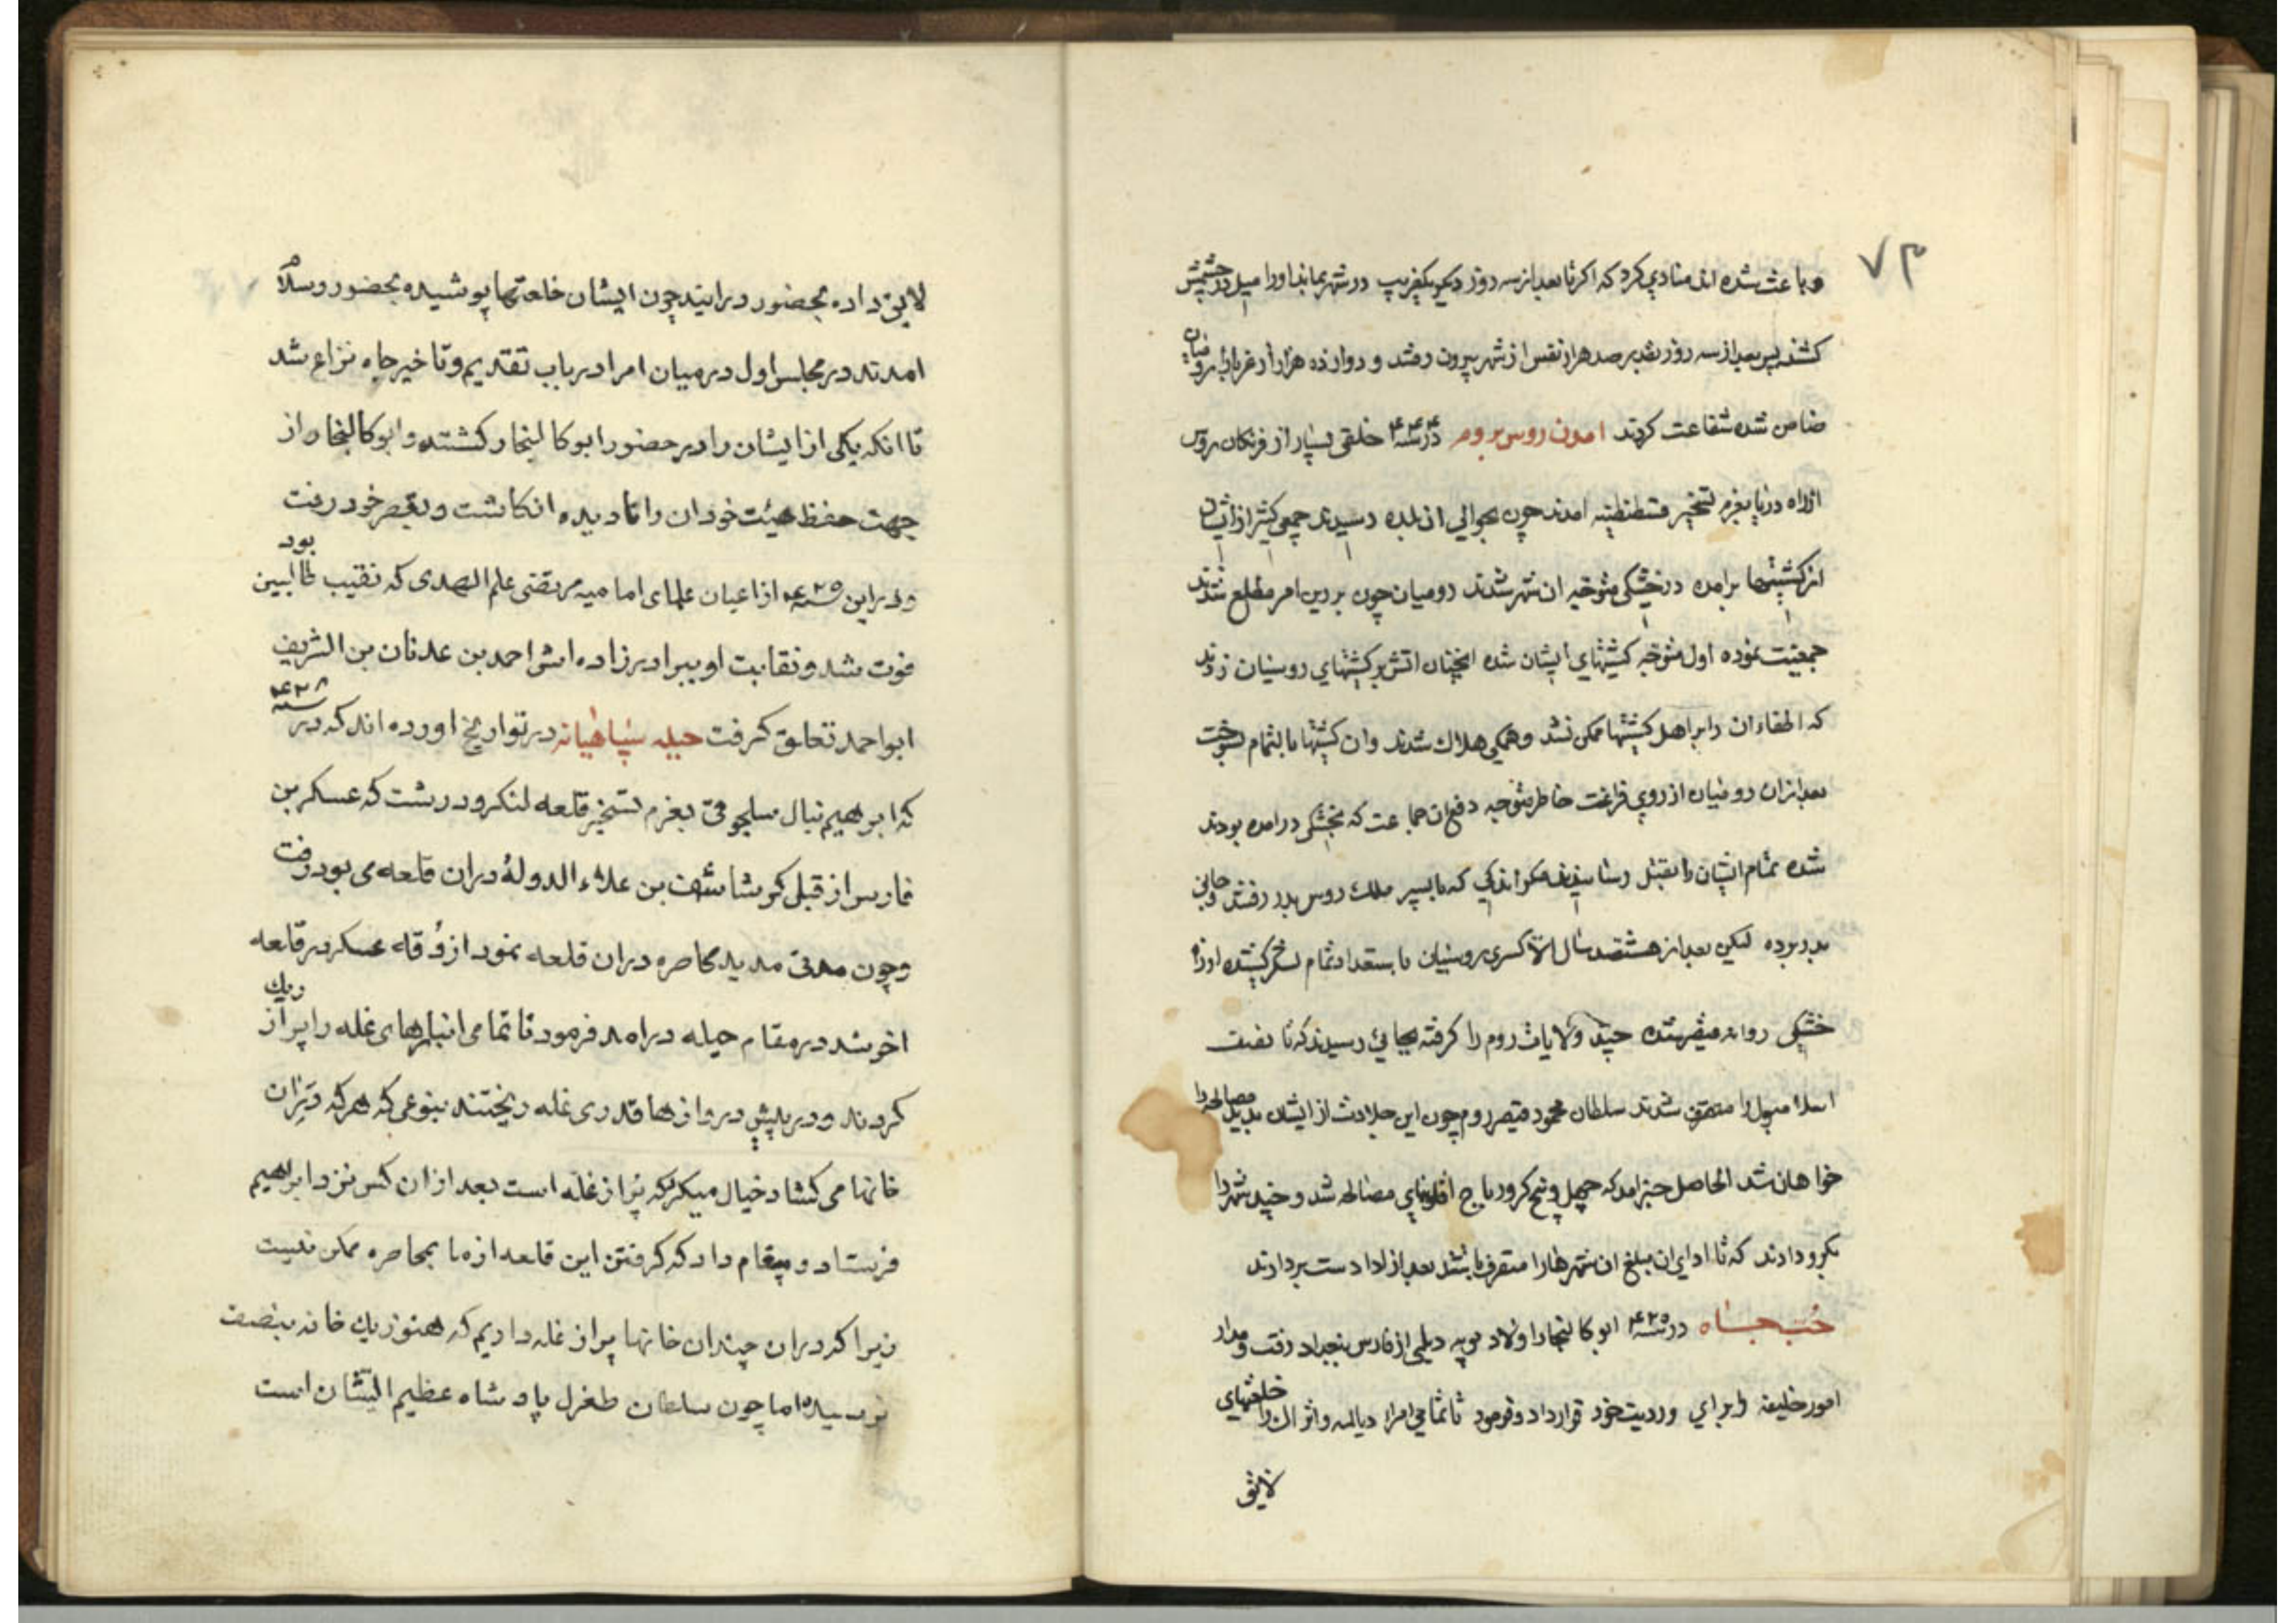 ۷۳
و باعث شده اند منادی کرد که اکر تا بعد از سه روز دیکر یکغریب در شهر بماند او را میل در چشمش
کشند پس بعد از سه روز بقدر صد هزار نفس از شهر بیرون رفتند و دوازده هزار از غربا را رومیان
ضامن شده شفاعت کردند امدن روس بروم در سنه ۴۳۴ خلقی بسیار از فرنکان روس
از راه دریا بعزم تسخیر قسطنطنیه امدند چون بحوالی ان بلده رسیدند جمعی کثیر از ایشان
از کشتیها برامده در خشکی متوجه ان شهر شدند رومیان چون بر دین امر مطلع شدند
جمعیت نموده اول متوجه کشتیهای ایشان شده انچنان اتش بر کشتیهای روسیان زدند
که اطفاء ان را بر اهل کشتیها ممکن نشد و همکی هلاک شدند و ان کشتیها بالتمام بسوخت
بعد از ان رومیان از روی فراغت خاطر متوجه دفع ان جماعت که بخشکی در امده بودند
شده تمام ایشان را بقتل رسانیدند مکر اندکی که با پسر ملک روس بدر رفتند و جانی
بدر برده لیکن بعد از هشتصد سال الا کسری روسیان با ستعداد تمام لشکر کشیده از راه
خشکی روانه شده چند ولایات روم را کرفته بجایی رسیدند که تا نصف
اسلامبول را متصرف شدند سلطان محمود قیصر روم چون این جلادت از ایشان بدید مصالحه را
خواهان شد الحاصل خبر امد که چهل و پنج کرور باج مصالحه شد و چند شهر را
بکرو دادند که تا ادای ان مبلغ ان شهرها را متصرف باشند بعد از ادا دست بردارند
حُب جاه در سنه ۴۲۵ ابو کالنجار اولاد بویه دیلمی از فارس ببغداد رفت و مدار
امور خلیفه را برای و رویت خود قرار داد و فرمود تا تمامی امرا دیالمه و اتراک را خلعتهای
لایق
لایق داده بحضور درایند چون ایشان خلعتها پوشیده بحضور و سلام
امدند در مجلس اول در میان امرا در باب تقدیم و تاخیر جاه نزاع شد
تا انکه یکی از ایشان را در حضور ابو کالنجار کشتند و ابو کالنجار از
جهت حفظ هیئت خود ان را نادیده انکاشت و بقصر خود رفت
و در این سنه ۴۲۵ از اعیان علمای امامیه مرتضی علم الهدی که نقیب طالبین بود
فوت شد و نقابت او ببرادرزاده اش احمد بن عدنان بن الشریف
ابو احمد تعلق کرفت حیله سپاهیانه در تواریخ اورده اند که در سنه ۴۳۸
که ابرهیم نیال سلجوقی بعزم تسخیر قلعه لنکرود رشت که عسکر بن
فارس از قبل کوشاشف بن علاء الدوله دران قلعه می بود رفت
و چون مدتی مدید محاصره دران قلعه نمود ازوقه عسکر در قلعه
اخر شد در مقام حیله درامد فرمود تا تمامی انبارهای غله را پر از ریک
کردند و در پیش دروازها قدری غله ریختند بنوعی که هر که در ان
خانها می کشاد خیال میکرد که پر از غله است بعد از ان کس نزد ابرهیم
فرستاد و پیغام داد که کرفتن این قلعه از ما بمحاصره ممکن نیست
زیرا که دران چندان خانها پر از غله داریم که هنوز یک خانه بنصف
نرسیده اما چون سلطان طغرل پادشاه عظیم الشان است